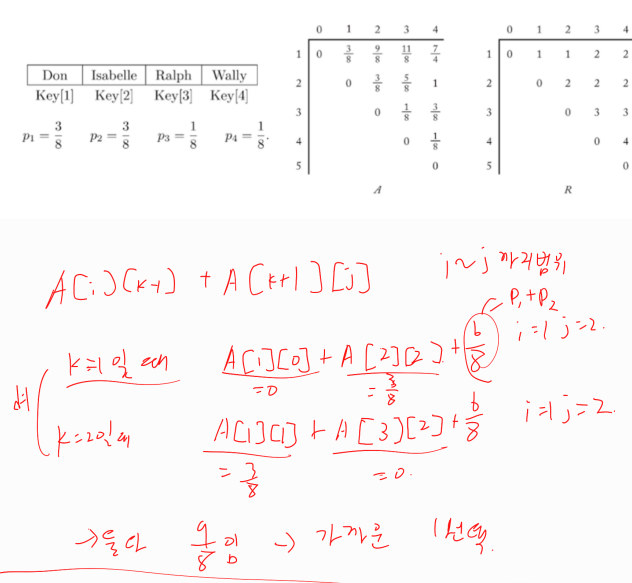 Don Isabelle Ralph Wally
Key[1] Key[2] Key[3] Key[4]
p₁ = 3/8 p₂ = 3/8 p₃ = 1/8 p₄ = 1/8.
0 1 2 3 4
1 0 3/8 9/8 11/8 7/4
2 0 3/8 5/8 1
3 0 1/8 3/8
4 0 1/8
5 0
A
0 1 2 3 4
1 0 1 1 2 2
2 0 2 2 2
3 0 3 3
4 0 4
5 0
R
A[i][k-1] + A[k+1][j]
j~j 까지 범위
P₁+P₂
k=1일 때 A[1][0] + A[2][2] + 6/8 i=1 j=2.
=0 = 3/8
k=2일 때 A[1][1] + A[3][2] + 6/8 i=1 j=2.
= 3/8 = 0.
→ 둘다 9/8 임 → 가까운 1선택.